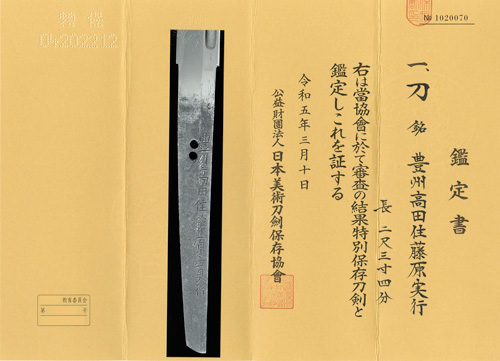 № 1020070
鑑定書
一、刀 銘 豊州高田住藤原実行
長 二尺三寸四分
右は當協會に於て審査の結果特別保存刀剣と
鑑定しこれを証する
令和五年三月十日
公益財團法人 日本美術刀劍保存協會
教育委員会
第 号